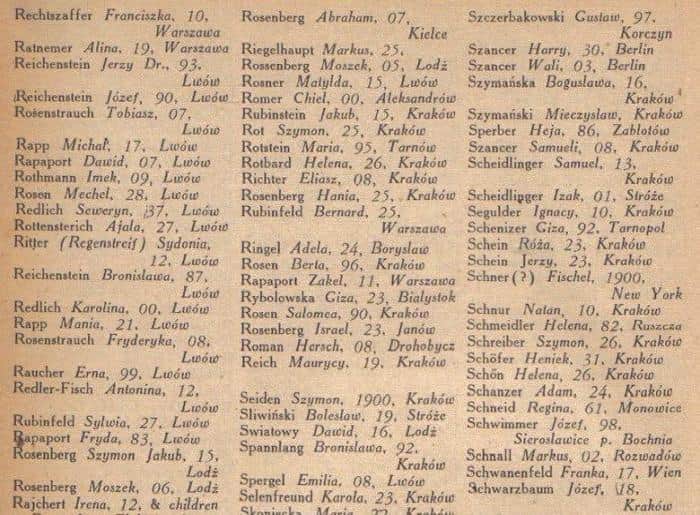 Rechtszaffer Franciszka, 10,
Warszawa
Ratnemer Alina, 19, Warszawa
Reichenstein Jerzy Dr., 93,
Lwów
Reichenstein Józef, 90, Lwów
Rosenstrauch Tobiasz, 07,
Lwów
Rapp Michał, 17, Lwów
Rapaport Dawid, 07, Lwów
Rothmann Imek, 09, Lwów
Rosen Mechel, 28, Lwów
Redlich Seweryn, 37, Lwów
Rottensterich Ajala, 27, Lwów
Ritter (Regenstreif) Sydonia,
12, Lwów
Reichenstein Bronisława, 87,
Lwów
Redlich Karolina, 00, Lwów
Rapp Mania, 21, Lwów
Rosenstrauch Fryderyka, 08,
Lwów
Raucher Erna, 99, Lwów
Redler-Fisch Antonina, 12,
Lwów
Rubinfeld Sylwia, 27, Lwów
Rapaport Fryda, 83, Lwów
Rosenberg Szymon Jakub, 15,
Lodż
Rosenberg Moszek, 06, Lodż
Rajchert Irena, 12, & children
Rosenberg Abraham, 07,
Kielce
Riegelhaupt Markus, 25,
Rossenberg Moszek, 05, Lodż
Rosner Matylda, 15, Lwów
Romer Chiel, 00, Aleksandrów
Rubinstein Jakub, 15, Kraków
Rot Szymon, 25, Kraków
Rotstein Maria, 95, Tarnów
Rotbard Helena, 26, Kraków
Richter Eliasz, 08, Kraków
Rosenberg Hania, 25, Kraków
Rubinfeld Bernard, 25,
Warszawa
Ringel Adela, 24, Borysław
Rosen Berta, 96, Kraków
Rapaport Zakel, 11, Warszawa
Rybolowska Giza, 23, Bialystok
Rosen Salomea, 90, Kraków
Rosenberg Israel, 23, Janów
Roman Hersch, 08, Drohobycz
Reich Maurycy, 19, Kraków
Seiden Szymon, 1900, Kraków
Sliwiński Bolesław, 19, Stróże
Swiatowy Dawid, 16, Lodż
Spannlang Bronisława, 92,
Kraków
Spergel Emilia, 08, Lwów
Selenfreund Karola, 23, Kraków
Szczerbakowski Gustaw, 97,
Korczyn
Szancer Harry, 30, Berlin
Szancer Wali, 03, Berlin
Szymańska Bogusława, 16,
Kraków
Szymański Mieczysław, Kraków
Sperber Heja, 86, Zabłotów
Szancer Samueli, 08, Kraków
Scheidlinger Samuel, 13,
Kraków
Scheidlinger Izak, 01, Stróże
Segulder Ignacy, 10, Kraków
Schenizer Giza, 92, Tarnopol
Schein Róża, 23, Kraków
Schein Jerzy, 23, Kraków
Schner (?) Fischel, 1900,
New York
Schnur Natan, 10, Kraków
Schmeidler Helena, 82, Ruszcza
Schreiber Szymon, 26, Kraków
Schöfer Heniek, 31, Kraków
Schön Helena, 26, Kraków
Schanzer Adam, 24, Kraków
Schneid Regina, 61, Monowice
Schwimmer Józef, 98,
Sierosławice p. Bochnia
Schnall Markus, 02, Rozwadów
Schwanenfeld Franka, 17, Wien
Schwarzbaum Józef, 18,
Kraków